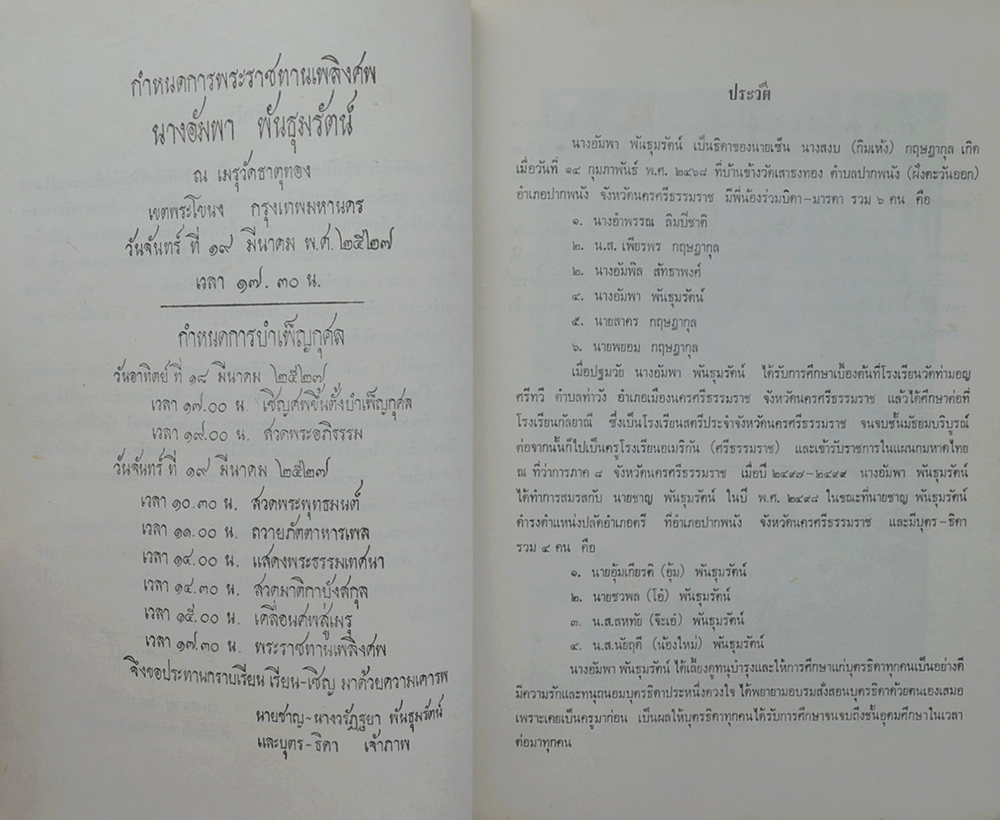 กำหนดการพระราชทานเพลิงศพ
นางอัมพา พันธุมรัตน์
ณ เมรุวัดธาตุทอง
เขตพระโขนง กรุงเทพมหานคร
วันจันทร์ ที่ ๑๙ มีนาคม พ.ศ.๒๕๒๗
เวลา ๑๗.๓๐ น.
กำหนดการบำเพ็ญกุศล
วันอาทิตย์ ที่ ๑๘ มีนาคม ๒๕๒๗
เวลา ๑๗.๐๐ น. เชิญศพขึ้นตั้งบำเพ็ญกุศล
เวลา ๑๙.๐๐ น. สวดพระอภิธรรม
วันจันทร์ ที่ ๑๙ มีนาคม ๒๕๒๗
เวลา ๑๐.๓๐ น. สวดพระพุทธมนต์
เวลา ๑๑.๐๐ น. ถวายภัตตาหารเพล
เวลา ๑๔.๐๐ น. แสดงพระธรรมเทศนา
เวลา ๑๔.๓๐ น. สวดมาติกาบังสกุล
เวลา ๑๕.๐๐ น. เคลื่อนศพสู่เมรุ
เวลา ๑๗.๓๐ น. พระราชทานเพลิงศพ
จึงขอประทานกราบเรียน เรียน-เชิญ มาด้วยความเคารพ
นายชาญ-นางวรัฏฐยา พันธุมรัตน์
และบุตร-ธิดา เจ้าภาพ
ประวัติ
นางอัมพา พันธุมรัตน์ เป็นธิดาของนายเซ็น นางสงบ (กิมเห้ง) กฤษฎากุล เกิด
เมื่อวันที่ ๑๔ กุมภาพันธ์ พ.ศ. ๒๔๖๘ ที่บ้านข้างวัดเสาธงทอง ตำบลปากพนัง (ฝั่งตะวันออก)
อำเภอปากพนัง จังหวัดนครศรีธรรมราช มีพี่น้องร่วมบิดา-มารดา รวม ๖ คน คือ
๑. นางอำพรรณ ลิมปิชาติ
๒. น.ส.เพียรพร กฤษฎากุล
๒. นางอัมพิล สัทธาพงศ์
๔. นางอัมพา พันธุมรัตน์
๕. นายสาคร กฤษฎากุล
๖. นายพยอม กฤษฎากุล
เมื่อปฐมวัย นางอัมพา พันธุมรัตน์ ได้รับการศึกษาเบื้องต้นที่โรงเรียนวัดท่ามอญ
ศรีทวี ตำบลท่าวัง อำเภอเมืองนครศรีธรรมราช จังหวัดนครศรีธรรมราช แล้วได้ศึกษาต่อที่
โรงเรียนกัลยาณี ซึ่งเป็นโรงเรียนสตรีประจำจังหวัดนครศรีธรรมราช จนจบชั้นมัธยมบริบูรณ์
ต่อจากนั้นก็ไปเป็นครูโรงเรียนอเมริกัน (ศรีธรรมราช) และเข้ารับราชการในแผนกมหาดไทย
ณ ที่ว่าการภาค ๘ จังหวัดนครศรีธรรมราช เมื่อปี ๒๔๙๗-๒๔๙๙ นางอัมพา พันธุมรัตน์
ได้ทำการสมรสกับ นายชาญ พันธุมรัตน์ ในปี พ.ศ. ๒๔๙๘ ในขณะที่นายชาญ พันธุมรัตน์
ดำรงตำแหน่งปลัดอำเภอตรี ที่อำเภอปากพนัง จังหวัดนครศรีธรรมราช และมีบุตร-ธิดา
รวม ๔ คน คือ
๑. นายอุ้มเกียรติ (อุ้ม) พันธุมรัตน์
๒. นายชวพล (โอ๋) พันธุมรัตน์
๓. น.ส.สหทัย (จ๊ะเอ๋) พันธุมรัตน์
๔. น.ส.นัยฤดี (น้องใหม่) พันธุมรัตน์
นางอัมพา พันธุมรัตน์ ได้เลี้ยงดูทนุบำรุงและให้การศึกษาแก่บุตรธิดาทุกคนเป็นอย่างดี
มีความรักและทนุถนอมบุตรธิดาประหนึ่งดวงใจ ได้พยายามอบรมสั่งสอนบุตรธิดาด้วยตนเองเสมอ
เพราะเคยเป็นครูมาก่อน เป็นผลให้บุตรธิดาทุกคนได้รับการศึกษาจนจบถึงชั้นอุดมศึกษาในเวลา
ต่อมาทุกคน